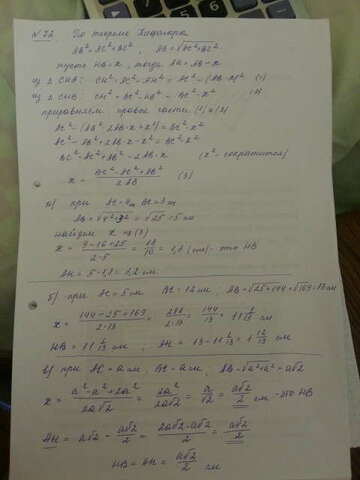 N 72. По теореме Пифагора
AB² = AC² + BC², AB = √AC² + BC²
пусть HB = x, тогда AH = AB - x
из △ CHB: CH² = AC² - AH² = AC² - (AB - x)² (1)
из △ CHB: CH² = BC² - HB² = BC² - x² (2)
приравняем правые части (1) и (2)
AC² - (AB² - 2AB·x + x²) = BC² - x²
AC² - AB² + 2AB·x - x² = BC² - x²
BC² - AC² + AB² = 2AB·x (x² - сократится)
x = BC² - AC² + AB² / 2AB (3)
а) при AC = 4см BC = 3см
AB = √4² + 3² = √25 = 5 см
найдём x из (3)
x = 9 - 16 + 25 / 2·5 = 18 / 10 = 1,8 (см) - это HB
AH = 5 - 1,8 = 3,2 см.
б) при AC = 5 см BC = 12 см, AB = √25 + 144 = √169 = 13 см
x = 144 - 25 + 169 / 2·13 = 288 / 2·13 = 144 / 13 = 11 1/13
HB = 11 1/13 см, AH = 13 - 11 1/13 = 1 12/13 см
в) при AC = a см BC = a см, AB = √a² + a² = a√2
x = a² - a² + 2a² / 2a√2 = 2a² / 2a√2 = a / √2 = a√2 / 2 см - это HB
AH = a√2 - a√2 / 2 = 2a√2 - a√2 / 2 = a√2 / 2
HB = AH = a√2 / 2 см